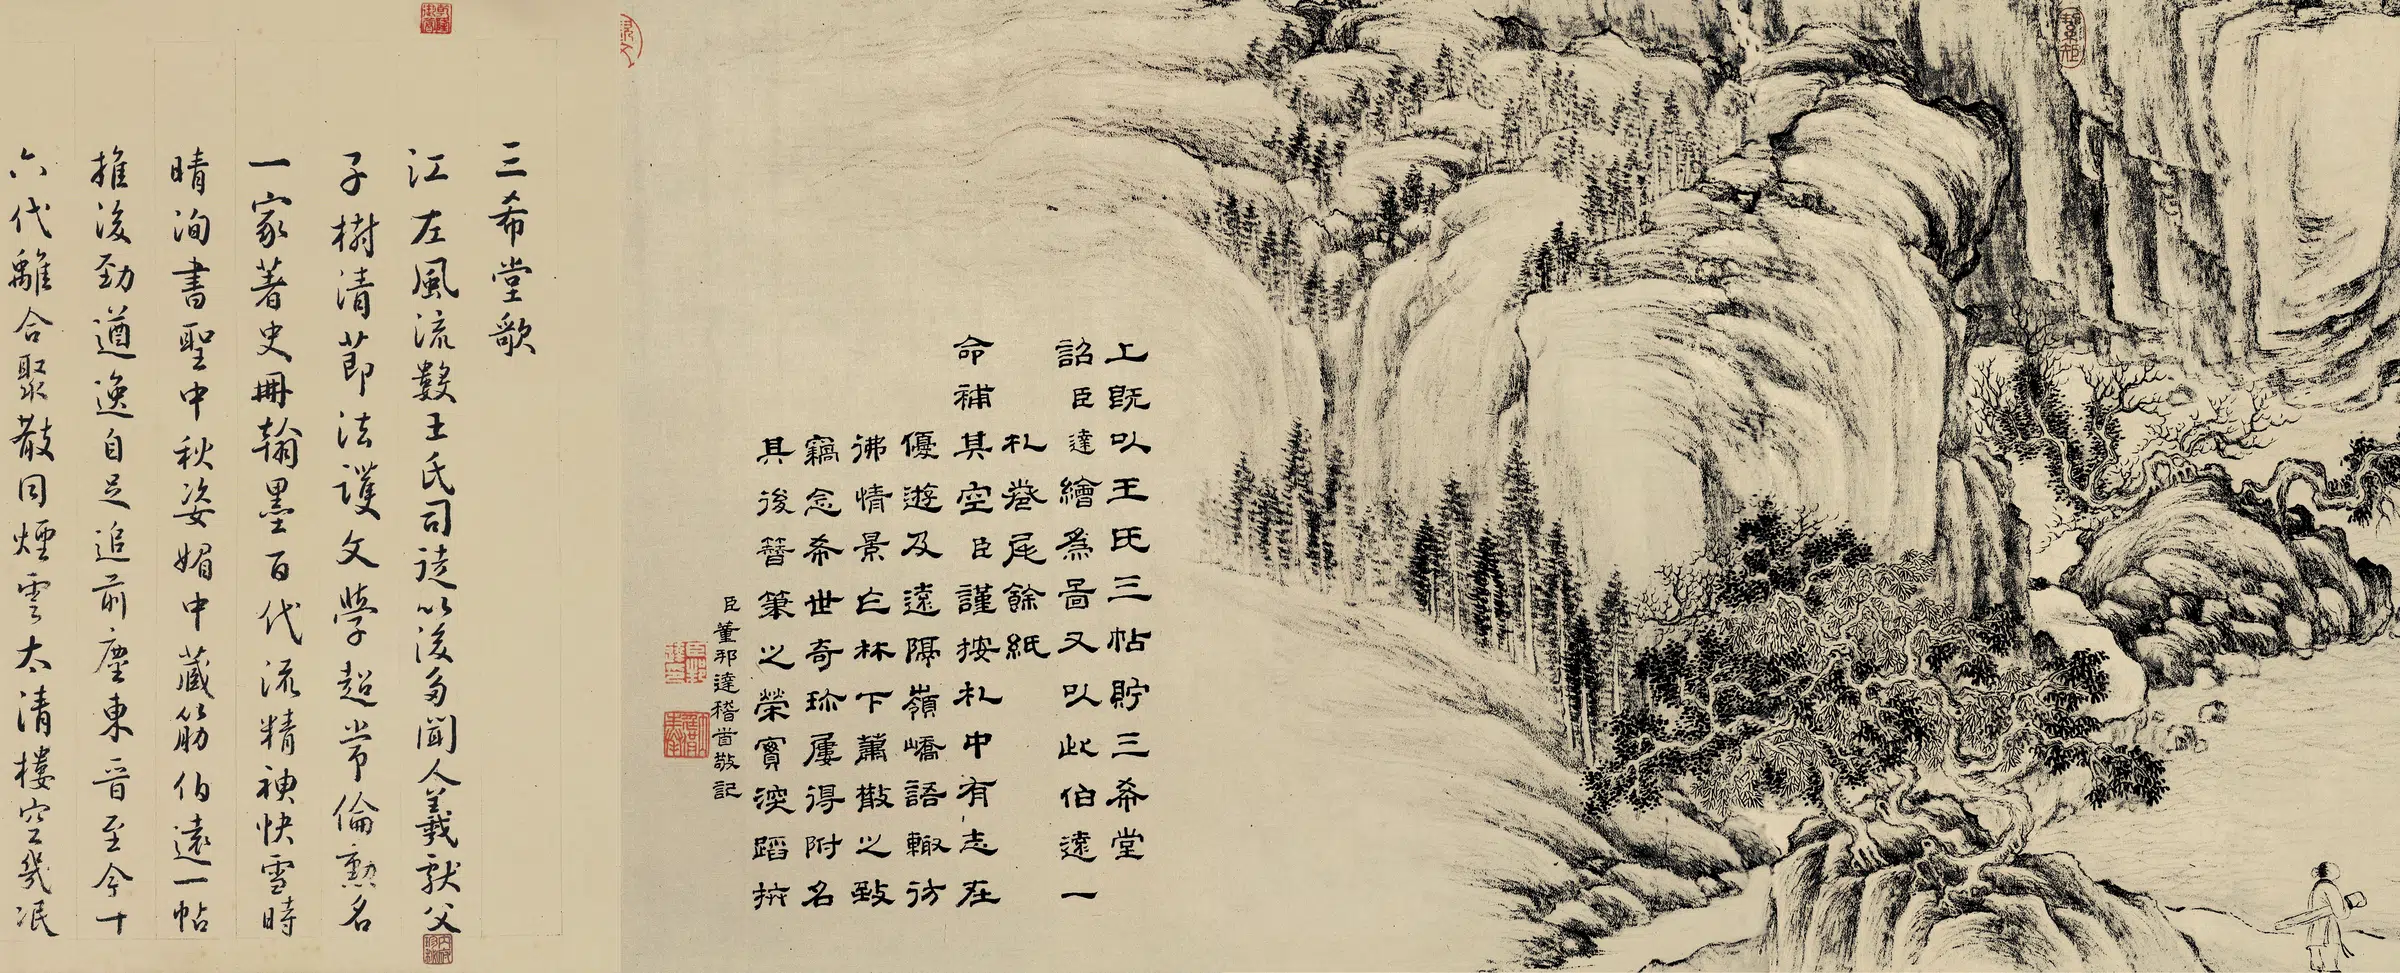 上既以王氏三帖貯三希堂
詔臣達繪為圖又以此伯遠一
札卷尾餘紙
命補其空臣謹按札中有志在
優遊及遠隔嶺嶠語輙彷
彿情景亡林下蕭散之致
竊念希世奇珍屢得附名
其後簪筆之榮實深蹈抃
臣董邦達稽首敬記
三希堂歌
江左風流數王氏司徒以後多聞人羲獻父
子樹清節法護文學超常倫勲名
一家著史冊翰墨百代流精神快雪時
晴洵書聖中秋姿媚中藏筋伯遠一帖
推後勁遒逸自足追前塵東晉至今十
六代離合聚散同煙雲太清樓空幾泯